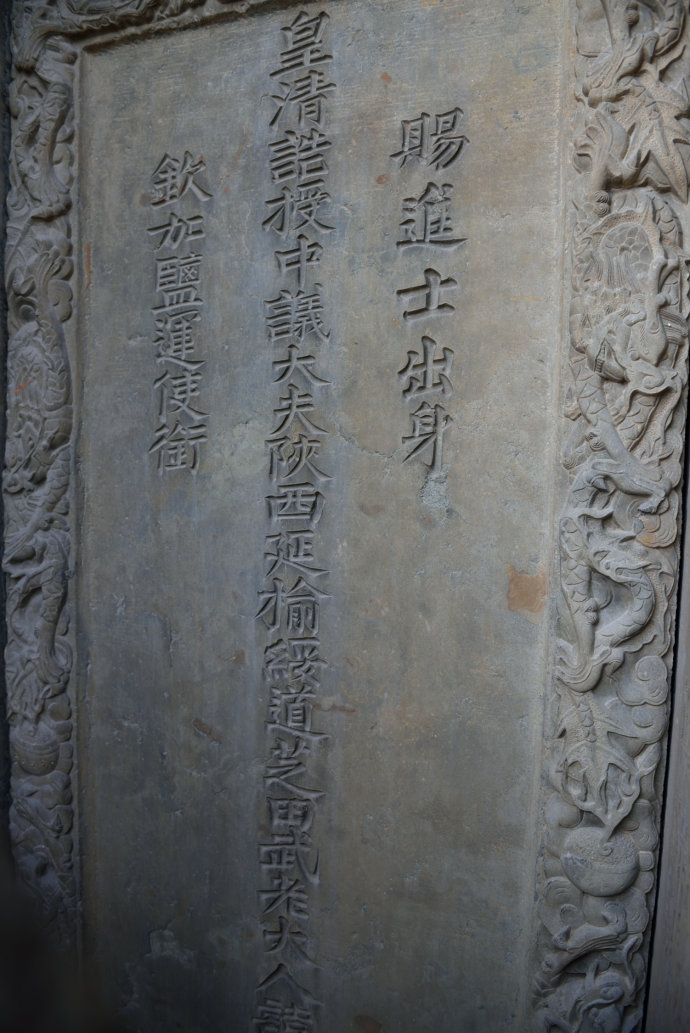 賜進士出身
皇清誥授中議大夫陝西延榆綏道芝田武老大人
欽加鹽運使銜